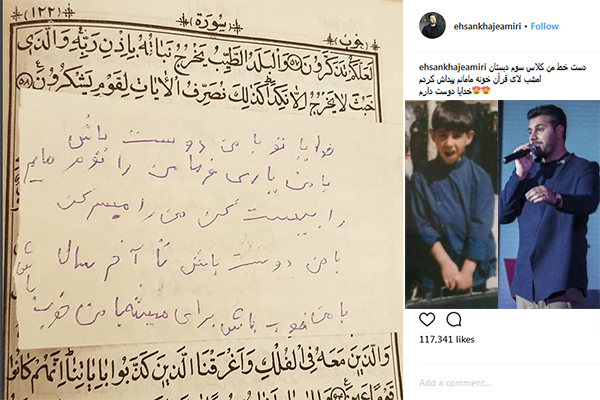 (۱۲۲)
سورة
لَعَلَّكُمْ تَذَكَّرُونَ ۵۷ وَالْبَلَدُ الطَّيِّبُ يَخْرُجُ نَبَاتُهُ بِإِذْنِ رَبِّهِ وَالَّذِي
خَبُثَ لَا يَخْرُجُ إِلَّا نَكِدًا كَذَلِكَ نُصَرِّفُ الْآيَاتِ لِقَوْمٍ يَشْكُرُونَ ۵۸
خدایا تو با من دوست باش
با من یاری
را بیست کن من را
با من دوست باش تا آخر سال
با من خوب باش برای همیشه با من خوب
باش
وَالَّذِينَ مَعَهُ فِي الْفُلْكِ وَأَغْرَقْنَا الَّذِينَ كَذَّبُوا بِآيَاتِنَا إِنَّهُمْ كَانُوا
قَوْمًا عَمِينَ
ehsankhajeamiri • Follow
ehsankhajeamiri دست خط من کلاس سوم دبستان
امشب لای قرآن خونه مامانم پیداش کردم
خدایا دوست دارم😍😍
117,341 likes
Add a comment...